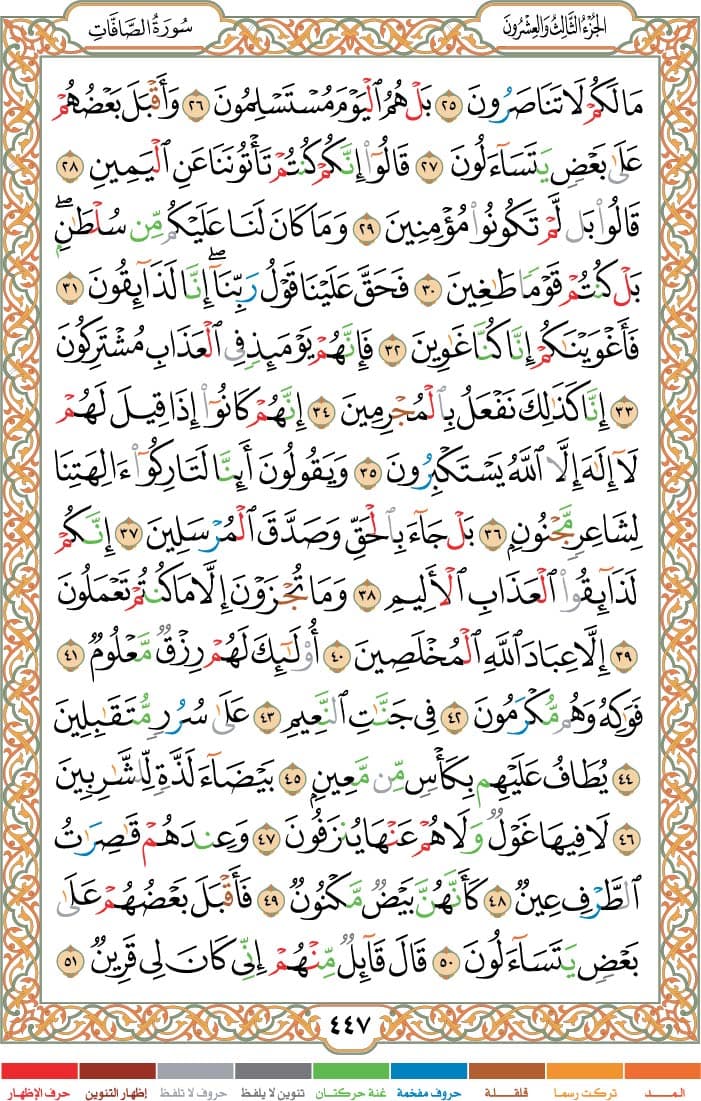 الجُزْءُ الثَّالِثُ وَالعِشْرُونَ
سُورَةُ الصَّافَّاتِ
مَا لَكُمْ لَا تَنَاصَرُونَ ٢٥ بَلْ هُمُ ٱلْيَوْمَ مُسْتَسْلِمُونَ ٢٦ وَأَقْبَلَ بَعْضُهُمْ
عَلَىٰ بَعْضٍ يَتَسَآءَلُونَ ٢٧ قَالُوٓا۟ إِنَّكُمْ كُنتُمْ تَأْتُونَنَا عَنِ ٱلْيَمِينِ ٢٨
قَالُوا۟ بَل لَّمْ تَكُونُوا۟ مُؤْمِنِينَ ٢٩ وَمَا كَانَ لَنَا عَلَيْكُم مِّن سُلْطَٰنٍۭ ۖ
بَلْ كُنتُمْ قَوْمًا طَٰغِينَ ٣٠ فَحَقَّ عَلَيْنَا قَوْلُ رَبِّنَآ ۖ إِنَّا لَذَآئِقُونَ ٣١
فَأَغْوَيْنَٰكُمْ إِنَّا كُنَّا غَٰوِينَ ٣٢ فَإِنَّهُمْ يَوْمَئِذٍ فِى ٱلْعَذَابِ مُشْتَرِكُونَ
٣٣ إِنَّا كَذَٰلِكَ نَفْعَلُ بِٱلْمُجْرِمِينَ ٣٤ إِنَّهُمْ كَانُوٓا۟ إِذَا قِيلَ لَهُمْ
لَآ إِلَٰهَ إِلَّا ٱللَّهُ يَسْتَكْبِرُونَ ٣٥ وَيَقُولُونَ أَئِنَّا لَتَارِكُوٓا۟ ءَالِهَتِنَا
لِشَاعِرٍ مَّجْنُونٍۭ ٣٦ بَلْ جَآءَ بِٱلْحَقِّ وَصَدَّقَ ٱلْمُرْسَلِينَ ٣٧ إِنَّكُمْ
لَذَآئِقُوا۟ ٱلْعَذَابِ ٱلْأَلِيمِ ٣٨ وَمَا تُجْزَوْنَ إِلَّا مَا كُنتُمْ تَعْمَلُونَ
٣٩ إِلَّا عِبَادَ ٱللَّهِ ٱلْمُخْلَصِينَ ٤٠ أُو۟لَٰٓئِكَ لَهُمْ رِزْقٌ مَّعْلُومٌ ٤١
فَوَٰكِهُ وَهُم مُّكْرَمُونَ ٤٢ فِى جَنَّٰتِ ٱلنَّعِيمِ ٤٣ عَلَىٰ سُرُرٍ مُّتَقَٰبِلِينَ
٤٤ يُطَافُ عَلَيْهِم بِكَأْسٍ مِّن مَّعِينٍۭ ٤٥ بَيْضَآءَ لَذَّةٍ لِّلشَّٰرِبِينَ
٤٦ لَا فِيهَا غَوْلٌ وَلَا هُمْ عَنْهَا يُنزَفُونَ ٤٧ وَعِندَهُمْ قَٰصِرَٰتُ
ٱلطَّرْفِ عِينٌ ٤٨ كَأَنَّهُنَّ بَيْضٌ مَّكْنُونٌ ٤٩ فَأَقْبَلَ بَعْضُهُمْ عَلَىٰ
بَعْضٍ يَتَسَآءَلُونَ ٥٠ قَالَ قَآئِلٌ مِّنْهُمْ إِنِّى كَانَ لِى قَرِينٌ ٥١
٤٤٧
المــد تركت رسما قلقلة حروف مفخمة غنة حركتان تنوين لا يلفظ حروف لا تلفظ إظهار التنوين حرف الإظهار